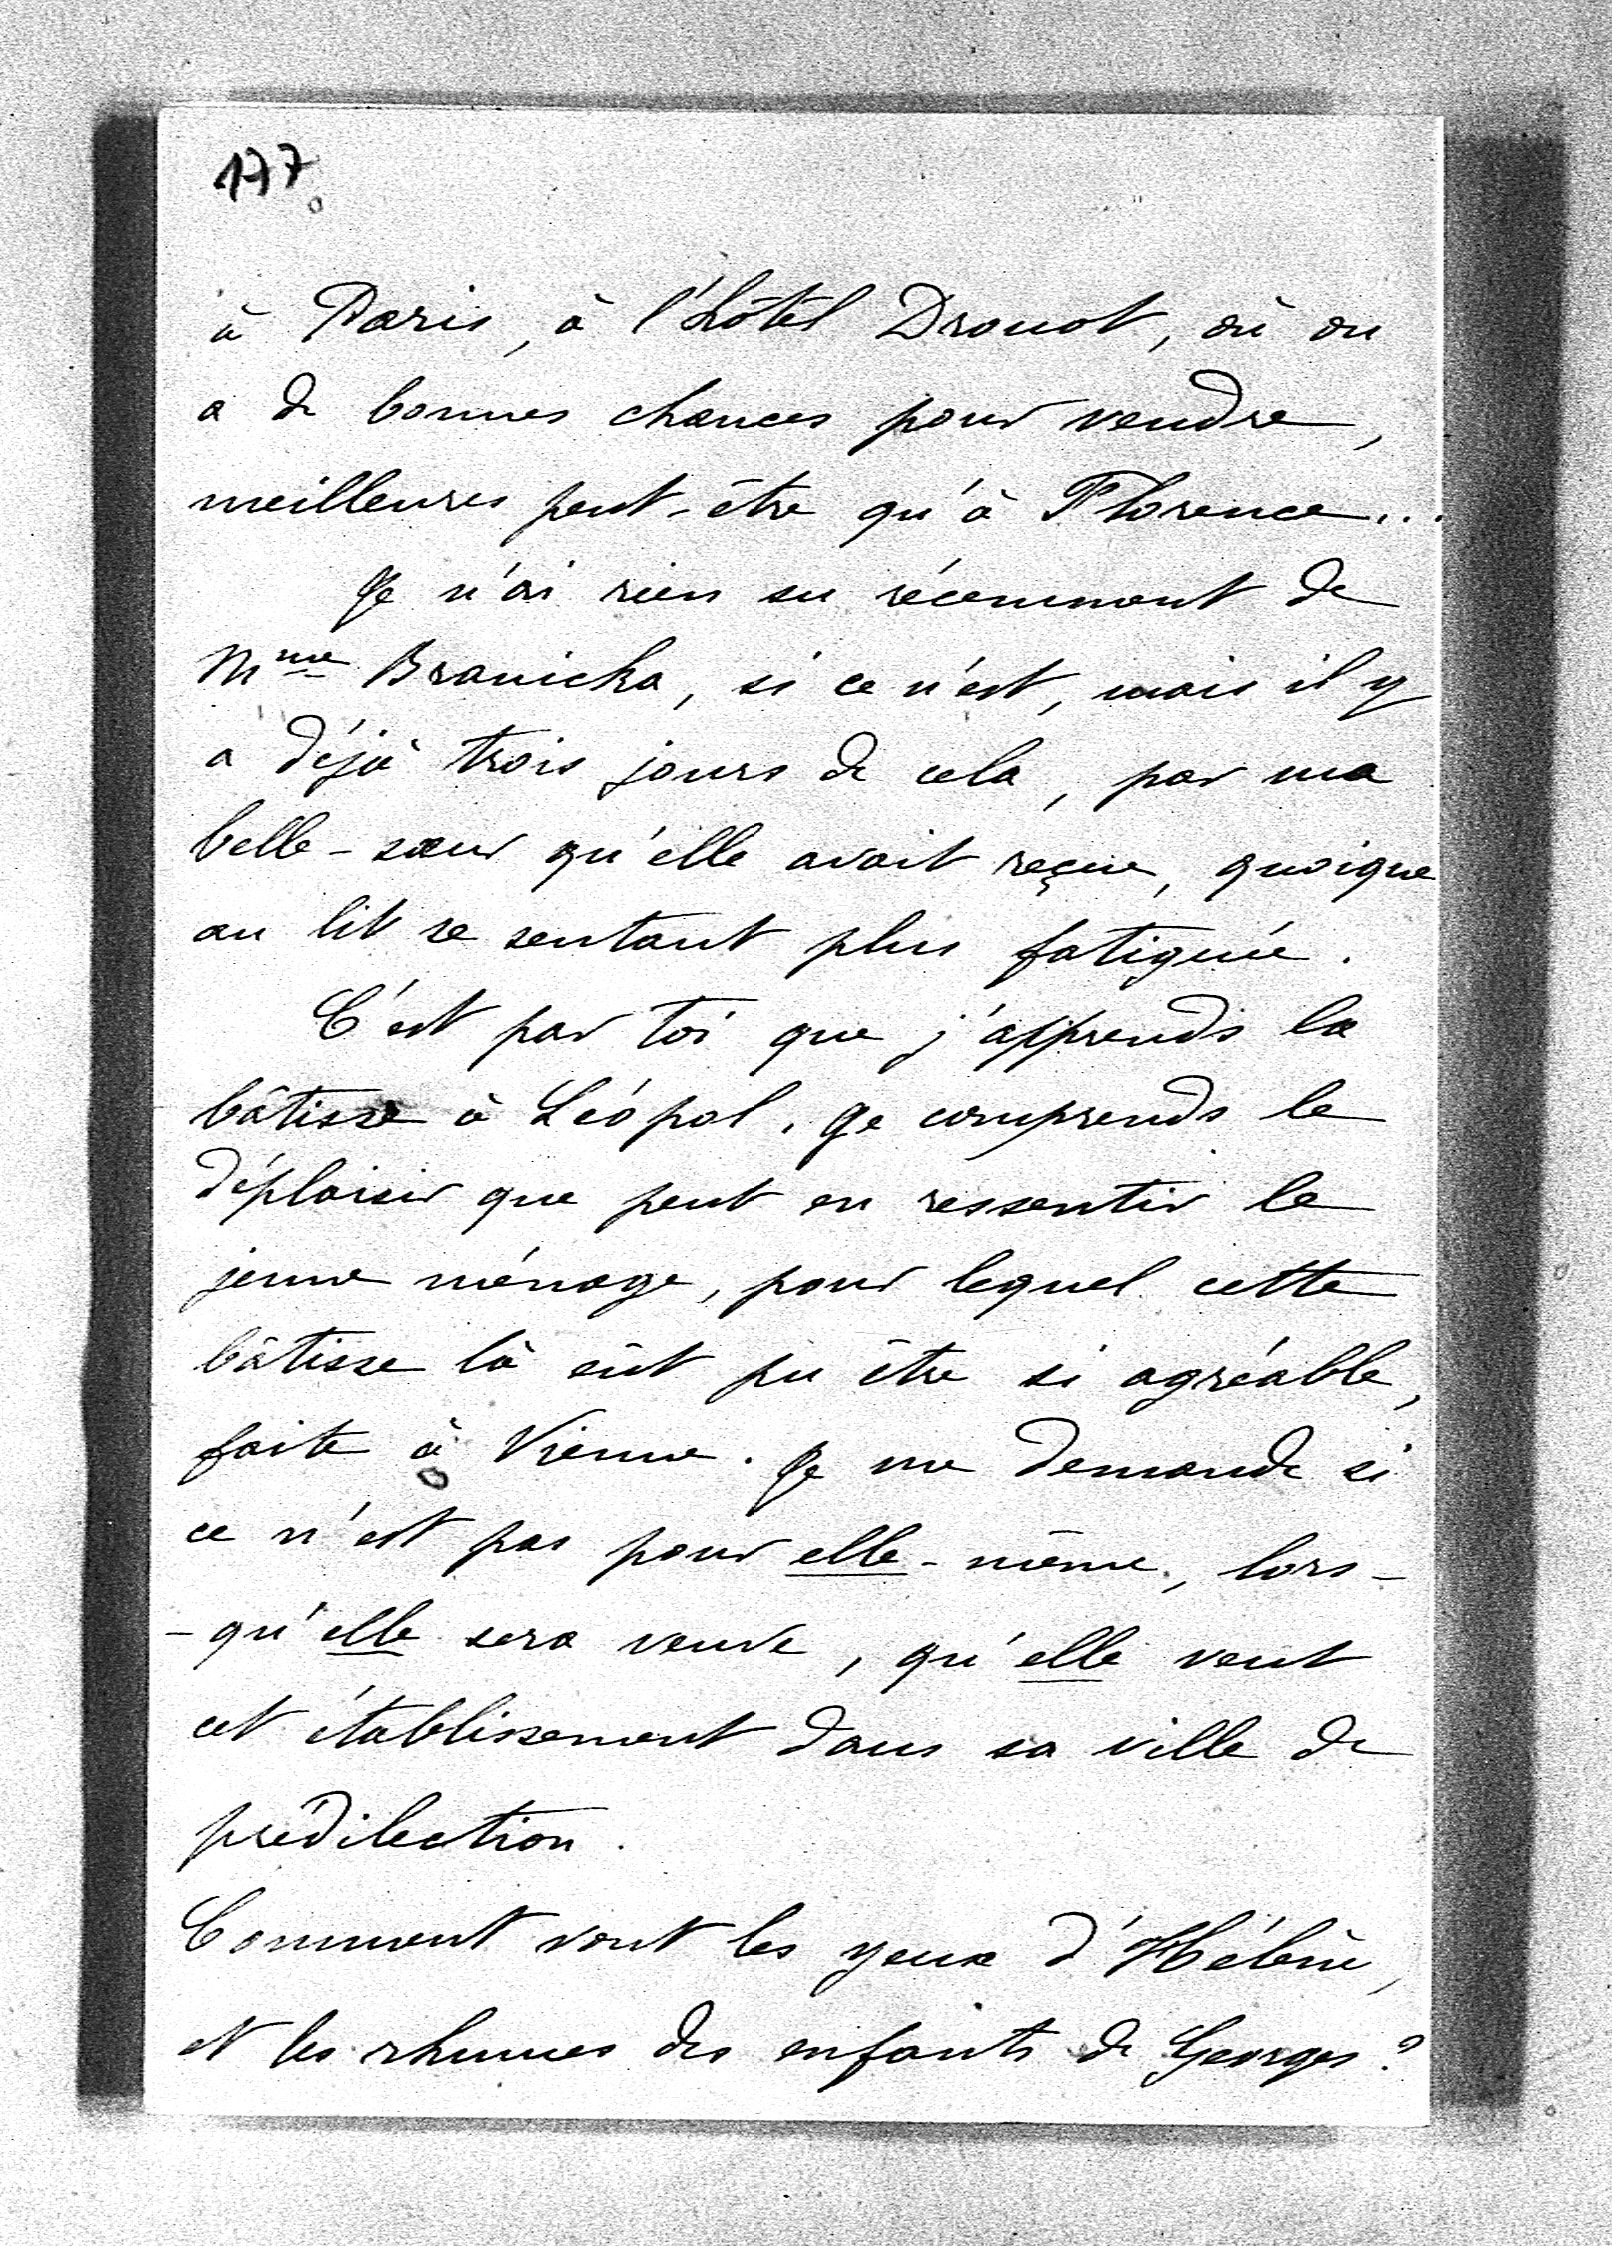 177
à Paris, à l'hôtel Drouot, où on
a de bonnes chances pour vendre,
meilleures peut-être qu'à Florence...
Je n'ai rien su récemment de
Mme Branicka, si ce n'est, mais il y
a déjà trois jours de cela, par ma
belle-sœur qu'elle avait reçue, quoique
au lit se sentant plus fatiguée.
C'est par toi que j'apprends la
bâtisse à Léopol. Je comprends le
déplaisir que peut en ressentir le
jeune ménage, pour lequel cette
bâtisse là eût pu être si agréable,
faite à Vienne. Je me demande si
ce n'est pas pour elle-même, lors-
-qu'elle sera veuve, qu'elle veut
cet établissement dans sa ville de
prédilection.
Comment vont les yeux d'Hélène,
et les rhumes des enfants de Georges?